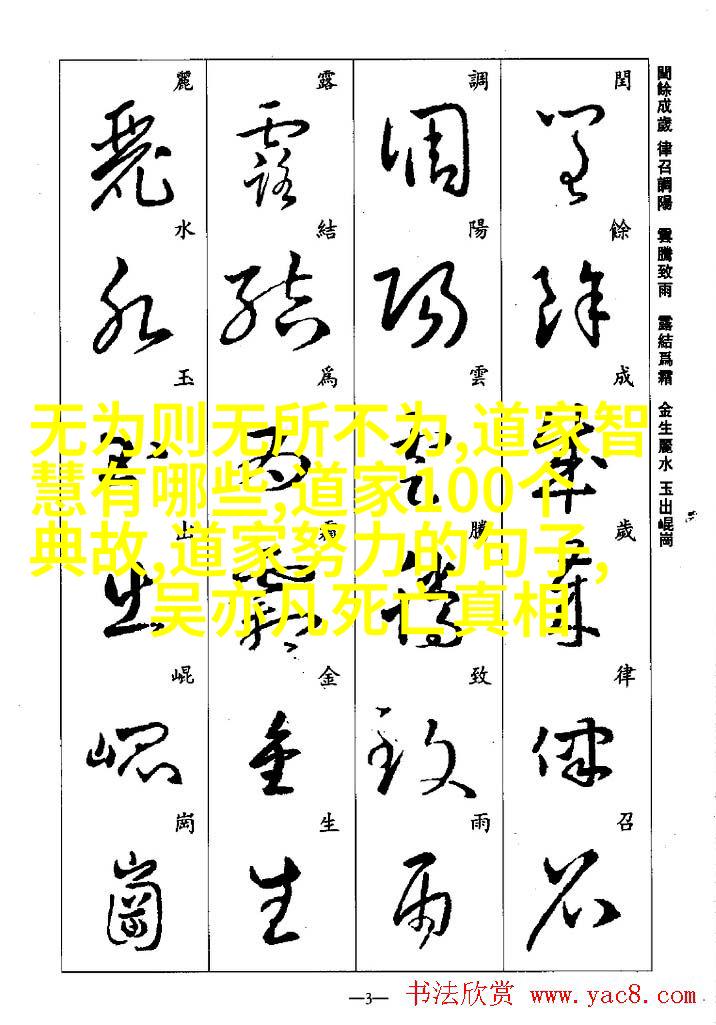 閏餘成歲 律召調陽 雲騰致雨 露結爲霜 金生麗水 玉出崐崗
閏
餘
成
歲
律
召
調
陽
雲
騰
致
雨
露
結
爲
霜
金
生
麗
水
玉
出
崐
崗
无为则无所不为,道家智
慧有哪些,道家100个
典故,道家努力的句子,
吴亦凡死亡真相
—3—
书法欣赏 www.yac8.com